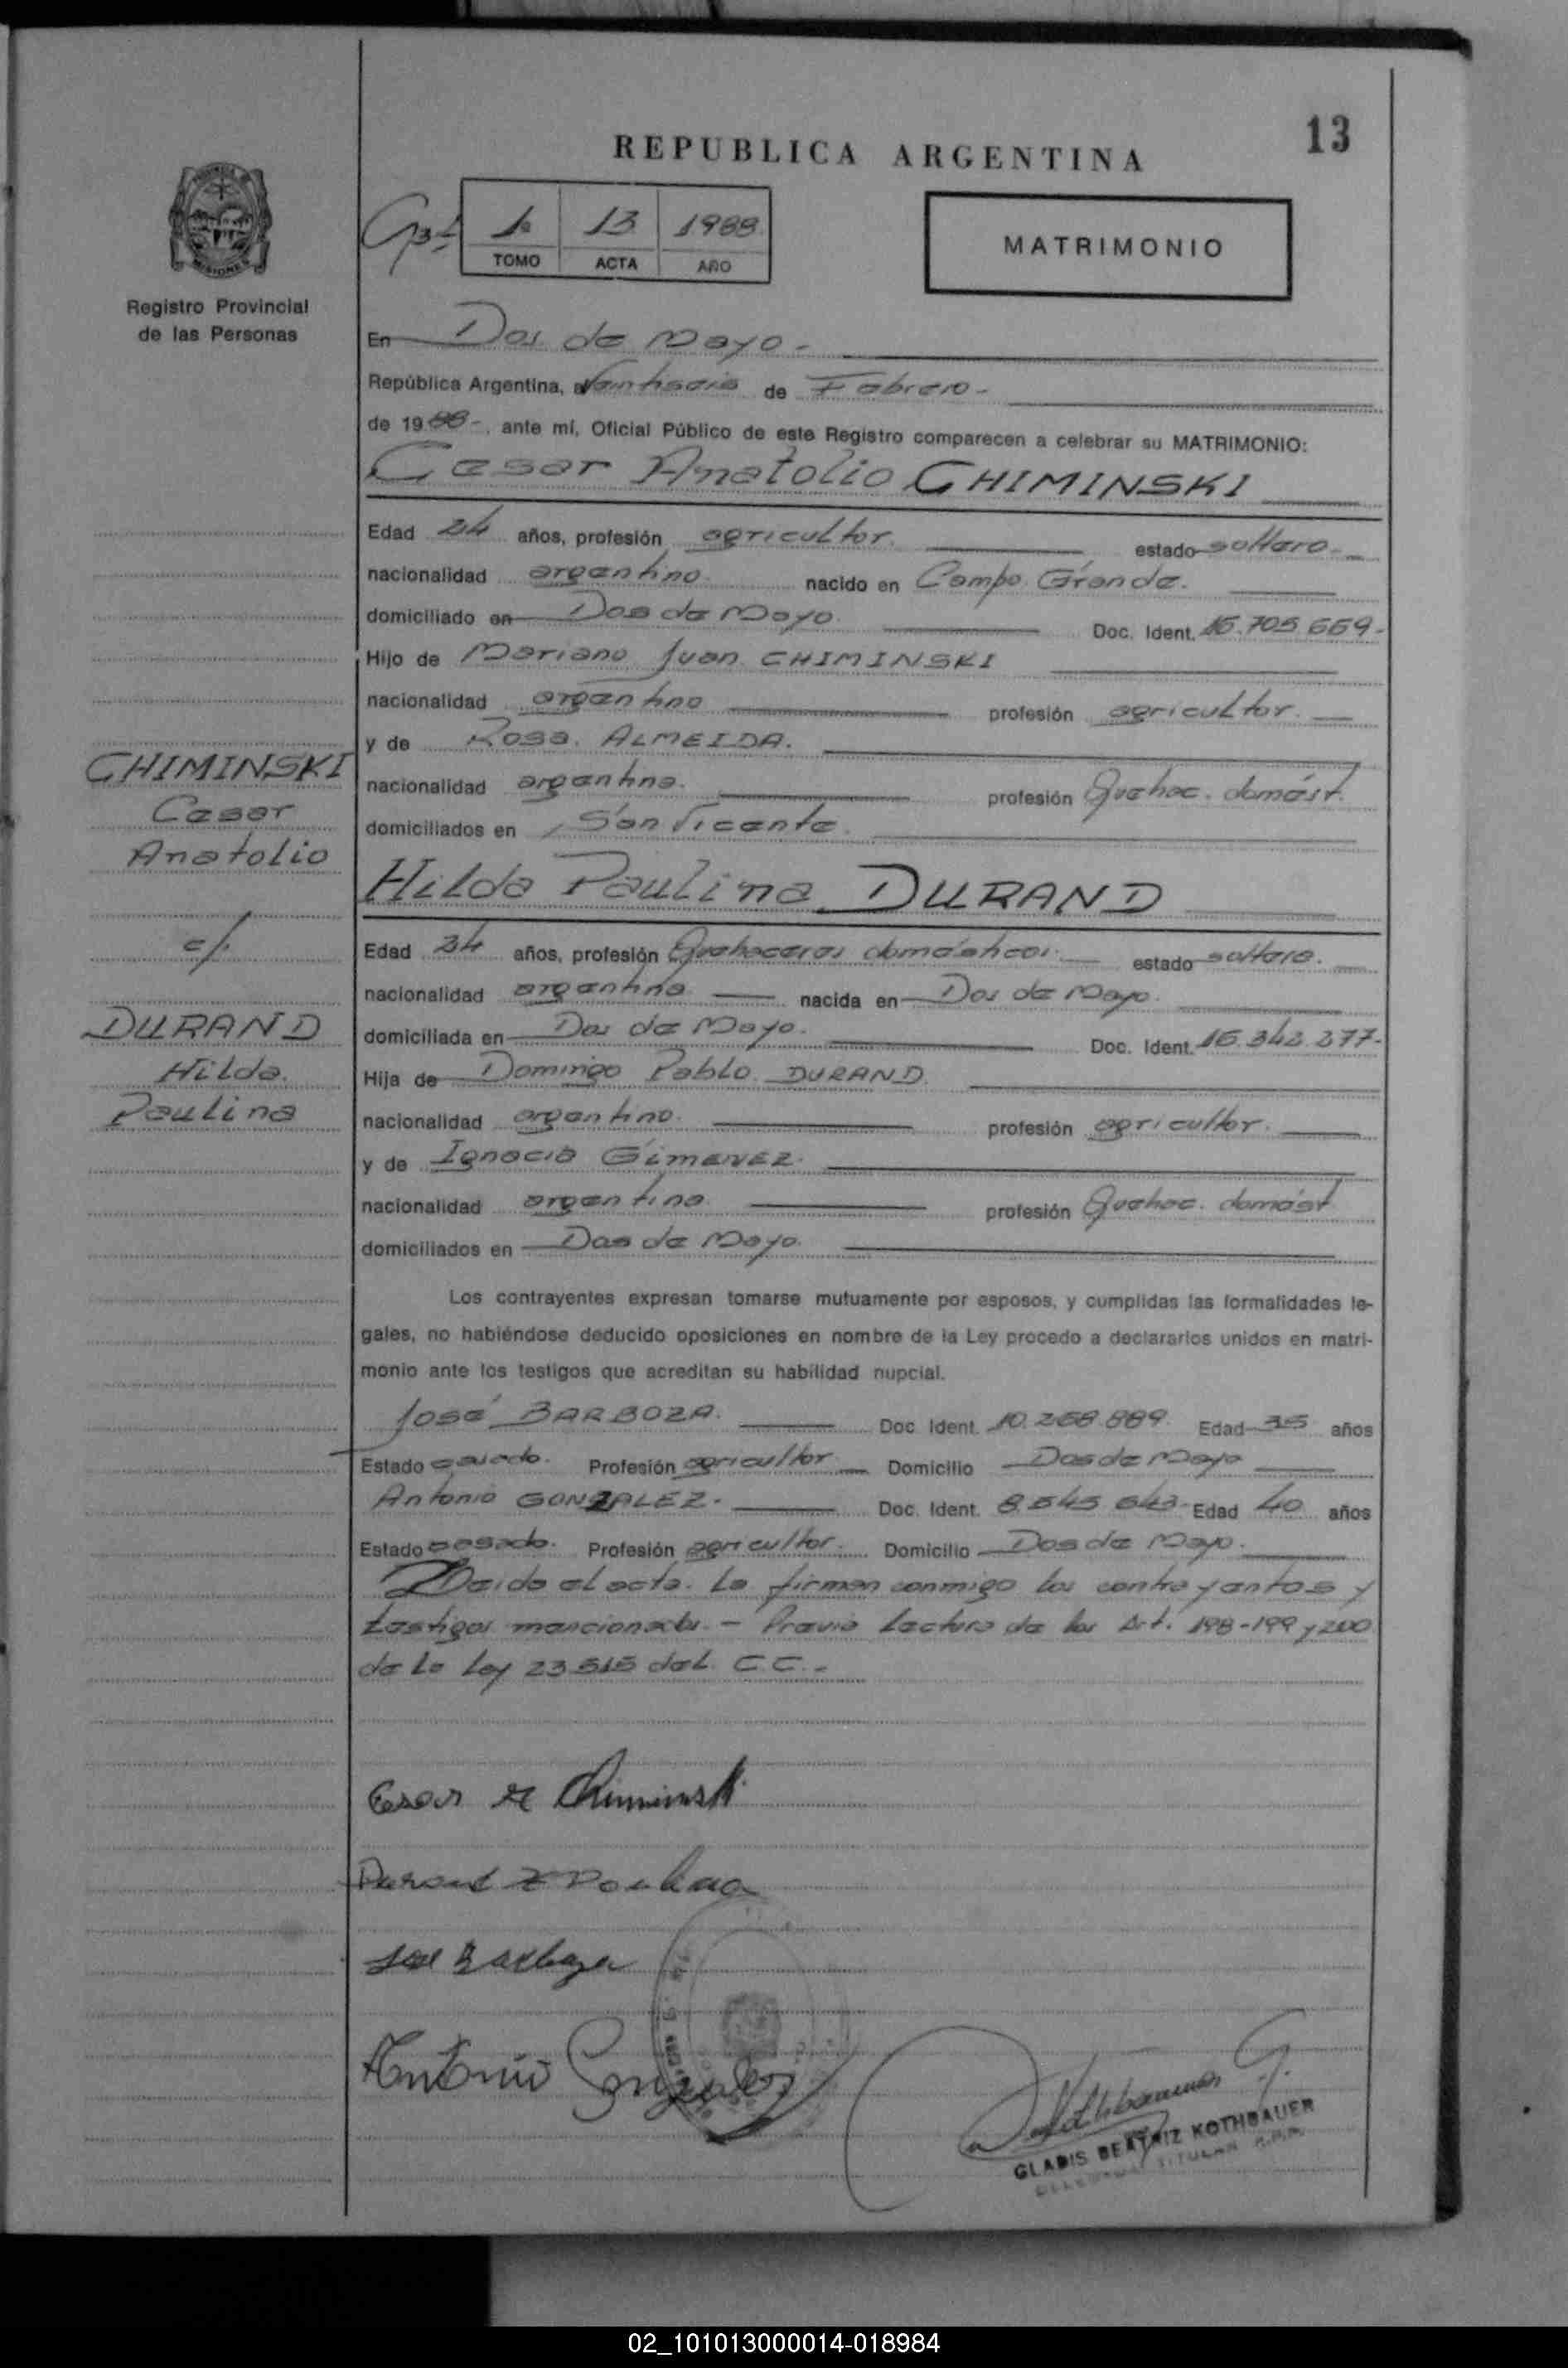 13
REPUBLICA ARGENTINA
1 13 1988
TOMO ACTA AÑO
MATRIMONIO
MISIONES
Registro Provincial
de las Personas
En Dos de Mayo.-
República Argentina, a Veintiseis de Febrero-
de 1988-, ante mí, Oficial Público de este Registro comparecen a celebrar su MATRIMONIO:
Cesar Anatolio CHIMINSKI
Edad 24 años, profesión agricultor. estado soltero.
nacionalidad argentino. nacido en Campo Grande.
domiciliado en Dos de Mayo. Doc. Ident. 16.705.669-
Hijo de Mariano Juan CHIMINSKI
nacionalidad argentino profesión agricultor.
y de Rosa ALMEIDA.
nacionalidad argentina. profesión Quehac. domést.
domiciliados en San Vicente.
CHIMINSKI
Cesar
Anatolio
c/.
DURAND
Hilda
Paulina
Hilda Paulina DURAND
Edad 24 años, profesión Quehaceres domésticos. estado soltera.
nacionalidad argentina nacida en Dos de Mayo.
domiciliada en Dos de Mayo. Doc. Ident. 16.342.277-
Hija de Domingo Pablo DURAND
nacionalidad argentino. profesión agricultor.
y de Ignacia GIMENEZ.
nacionalidad argentina profesión Quehac. domést
domiciliados en Dos de Mayo.
Los contrayentes expresan tomarse mutuamente por esposos, y cumplidas las formalidades le-
gales, no habiéndose deducido oposiciones en nombre de la Ley procedo a declararlos unidos en matri-
monio ante los testigos que acreditan su habilidad nupcial.
José BARBOZA. Doc. Ident. 10.268.889. Edad 35 años
Estado casado. Profesión agricultor Domicilio Dos de Mayo
Antonio GONZALEZ. Doc. Ident. 8.545.643- Edad 40 años
Estado casado. Profesión agricultor. Domicilio Dos de Mayo.
Leida el acta. La firman conmigo los contrayentes y
testigos mencionados.- Previa lectura de los Art. 198-199 y 200
de la Ley 23.515 del C.C.-
Cesar A Chiminski
Durand H Paulina
José Barboza
Antonio Gonzalez
Kothbauer G.
GLADIS BEATRIZ KOTHBAUER
TITULAR R.P.P.
02_101013000014-018984